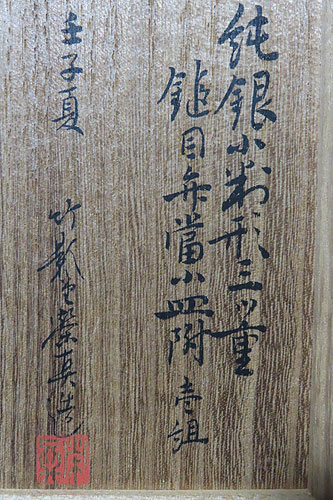 純銀小判形三ツ重
鎚目弁當小皿附 壱組
壬子夏
竹影堂榮真造